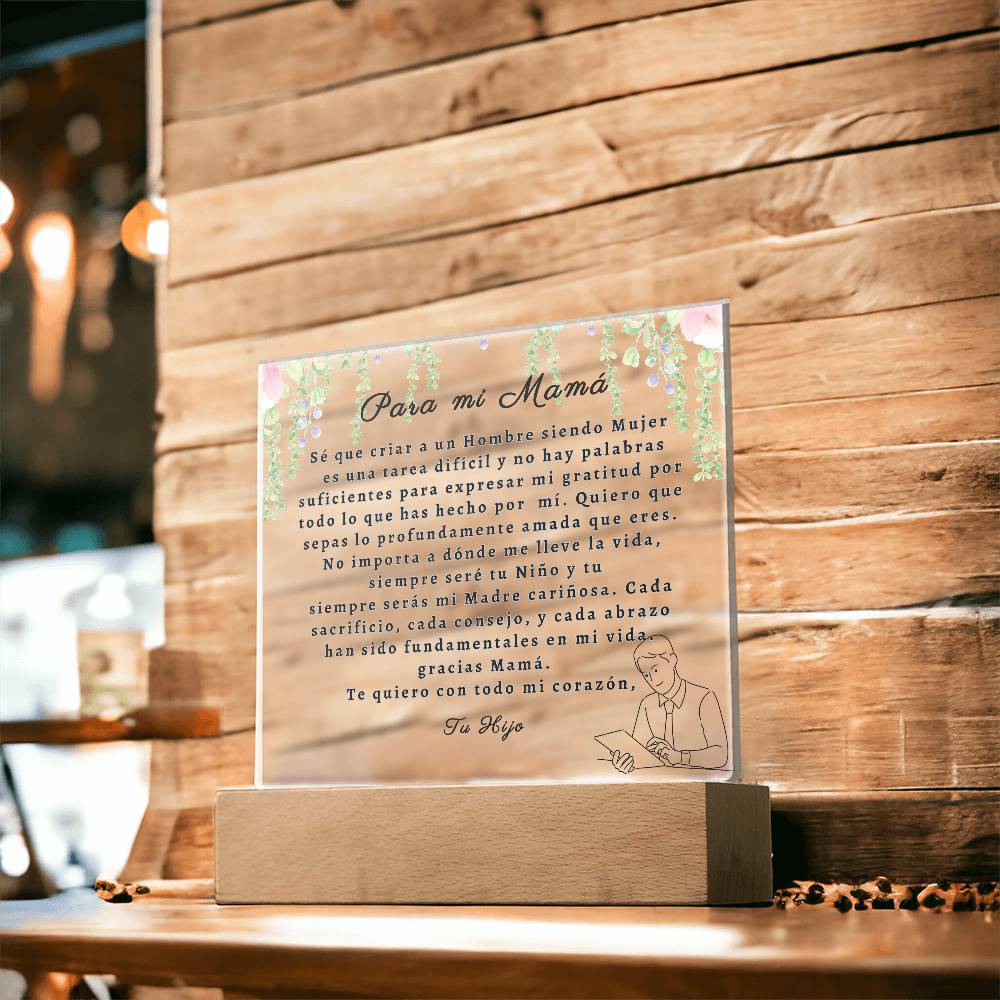 Para mi Mamá
Sé que criar a un Hombre siendo Mujer
es una tarea difícil y no hay palabras
suficientes para expresar mi gratitud por
todo lo que has hecho por mí. Quiero que
sepas lo profundamente amada que eres.
No importa a dónde me lleve la vida,
siempre seré tu Niño y tu
siempre serás mi Madre cariñosa. Cada
sacrificio, cada consejo, y cada abrazo
han sido fundamentales en mi vida.
gracias Mamá.
Te quiero con todo mi corazón,
Tu Hijo